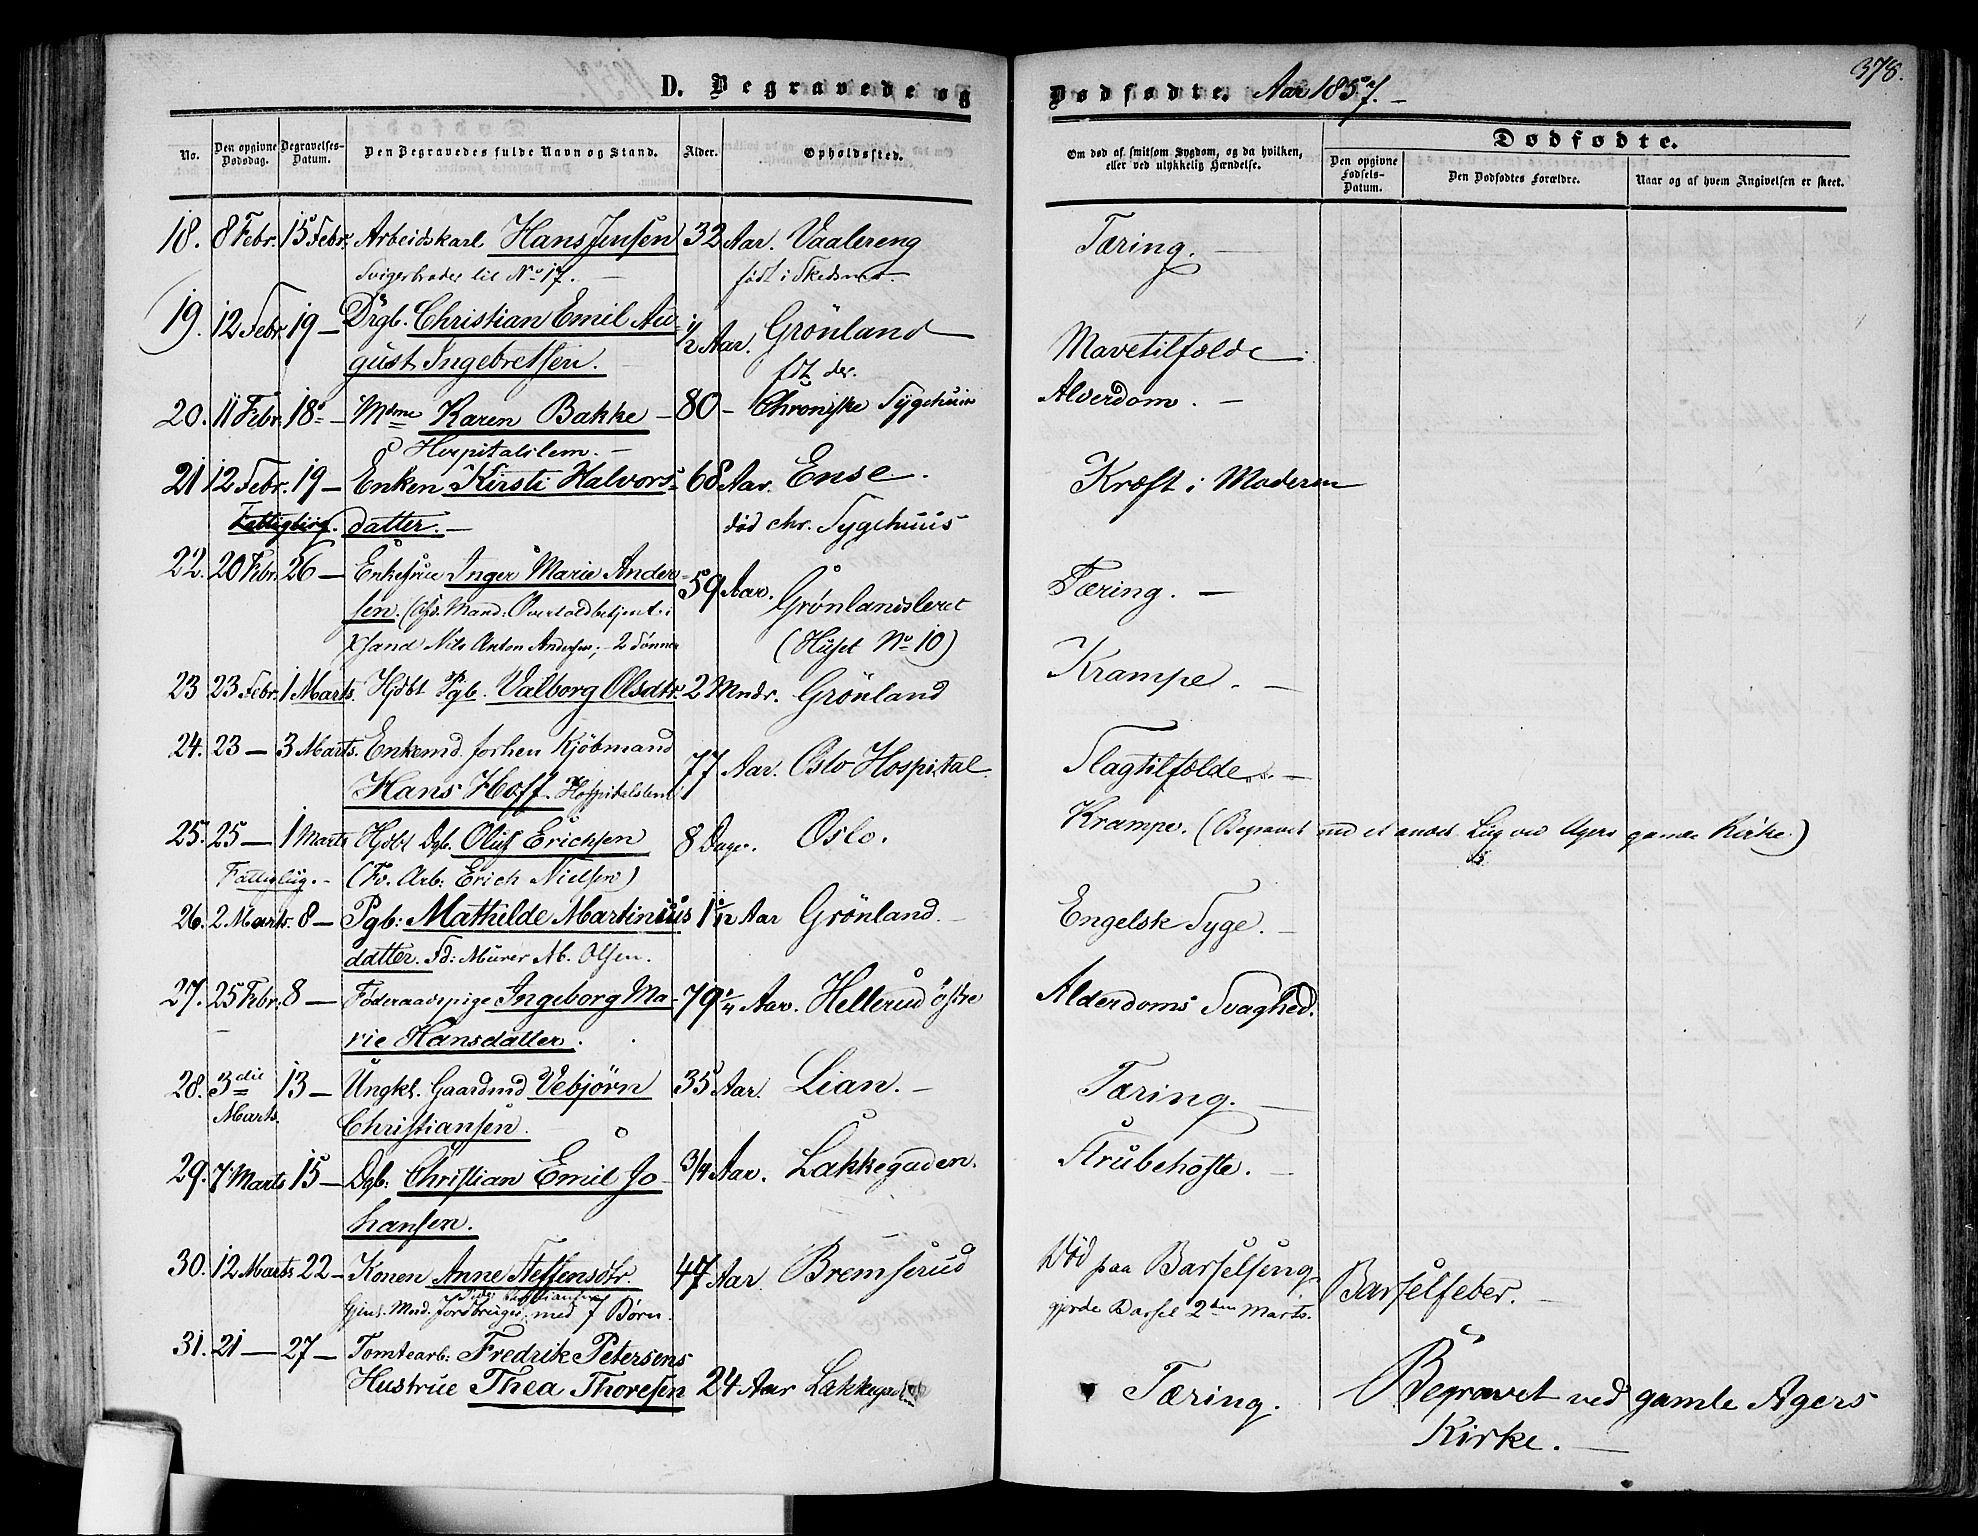 378.
D. Begravede og Dødfødte. Aar 1857.
No. Den opgivne Dødsdag. Begravelses-Datum. Den Begravedes fulde Navn og Stand. Alder. Opholdssted. Om død af smitsom Sygdom, og da hvilken, eller ved ulykkelig Hændelse. Dødfødte. Den opgivne Fødsels-Datum. Den Dødfødtes Forældre. Naar og af hvem Angivelsen er skeet.
18. 8 Febr. 15 Febr. Arbeidskarl Hans Jensen 32 Aar. Vaalereng Tæring. —
Svigerbroder til No 17. — født i Skedsmo
19. 12 Febr. 19 — Drgb. Christian Emil Au- 1/2 Aar. Grönland Mavetilfælde.
gust Ingebretsen. fdt der.
20. 11 Febr. 18 — Mdme Karen Bakke — 80 — Chroniske Sygehuus Alderdom. —
Hospitalslem. —
21 12 Febr. 19 — Enken Kirsti Halvors- 68 Aar. Ense. Kræft i Moderen
datter. — død chr. Sygehuus
22. 20 Febr. 26 — Enkefrue Inger Marie Ander- 59 Aar. Grönlandsleret Tæring. —
sen. Mand: Overtoldbetjent i (Huset No 10)
Nils Anton Andersen; — 2 Sønner
23 23 Febr. 1 Marts. Hjdbt Pgb. Valborg Olsdtr. 2 Mndr. Grönland Krampe. —
24. 23 — 3 Marts. Enkemd. forhen Kjöbmand 77 Aar. Oslo Hospital. Slagtilfælde. —
Hans Hoff Hospitalslem
25. 25 — 1 Marts Hjdbt Dgb. Oluf Erichsen 8 Dage. Oslo. Krampe. (Begravet med et andet Liig ved Agers gamle Kirke.)
Fattigliig. — (Fv. Arb: Erich Nielsen)
26. 2 Marts. 8 — Pgb: Mathilde Martinius 1 1/12 Aar Grönland. — Engelsk Syge. —
datter. Fd: Murer M. Olsen.
27. 25 Febr. 8 — Föderaadspige Ingeborg Ma- 79 1/4 Aar. Hellerud östre Alderdoms Svaghed.
rie Hansdatter.
28. 3die Marts. 13 — Ungkl. Gaardmd Vebjörn 35 Aar. Lian. — Tæring. —
Christiansen.
29. 7 Marts 15 — Dgb: Christian Emil Jo- 3/4 Aar. Lakkegaden. Strubehoste. —
hansen.
30. 12 Marts 22 — Konen Anne Steffensdtr. 47 Aar Bremserud Död paa Barselseng, Barselfeber. —
Mnd. Jordbruger med 7 Børn. gjorde Barsel 2den Marts.
31. 21 — 27 — Tomtearb: Fredrik Petersens
Hustrue Thea Thoresen 24 Aar Lakkegaden Tæring. Begravet ved gamle Agers
Kirke. —